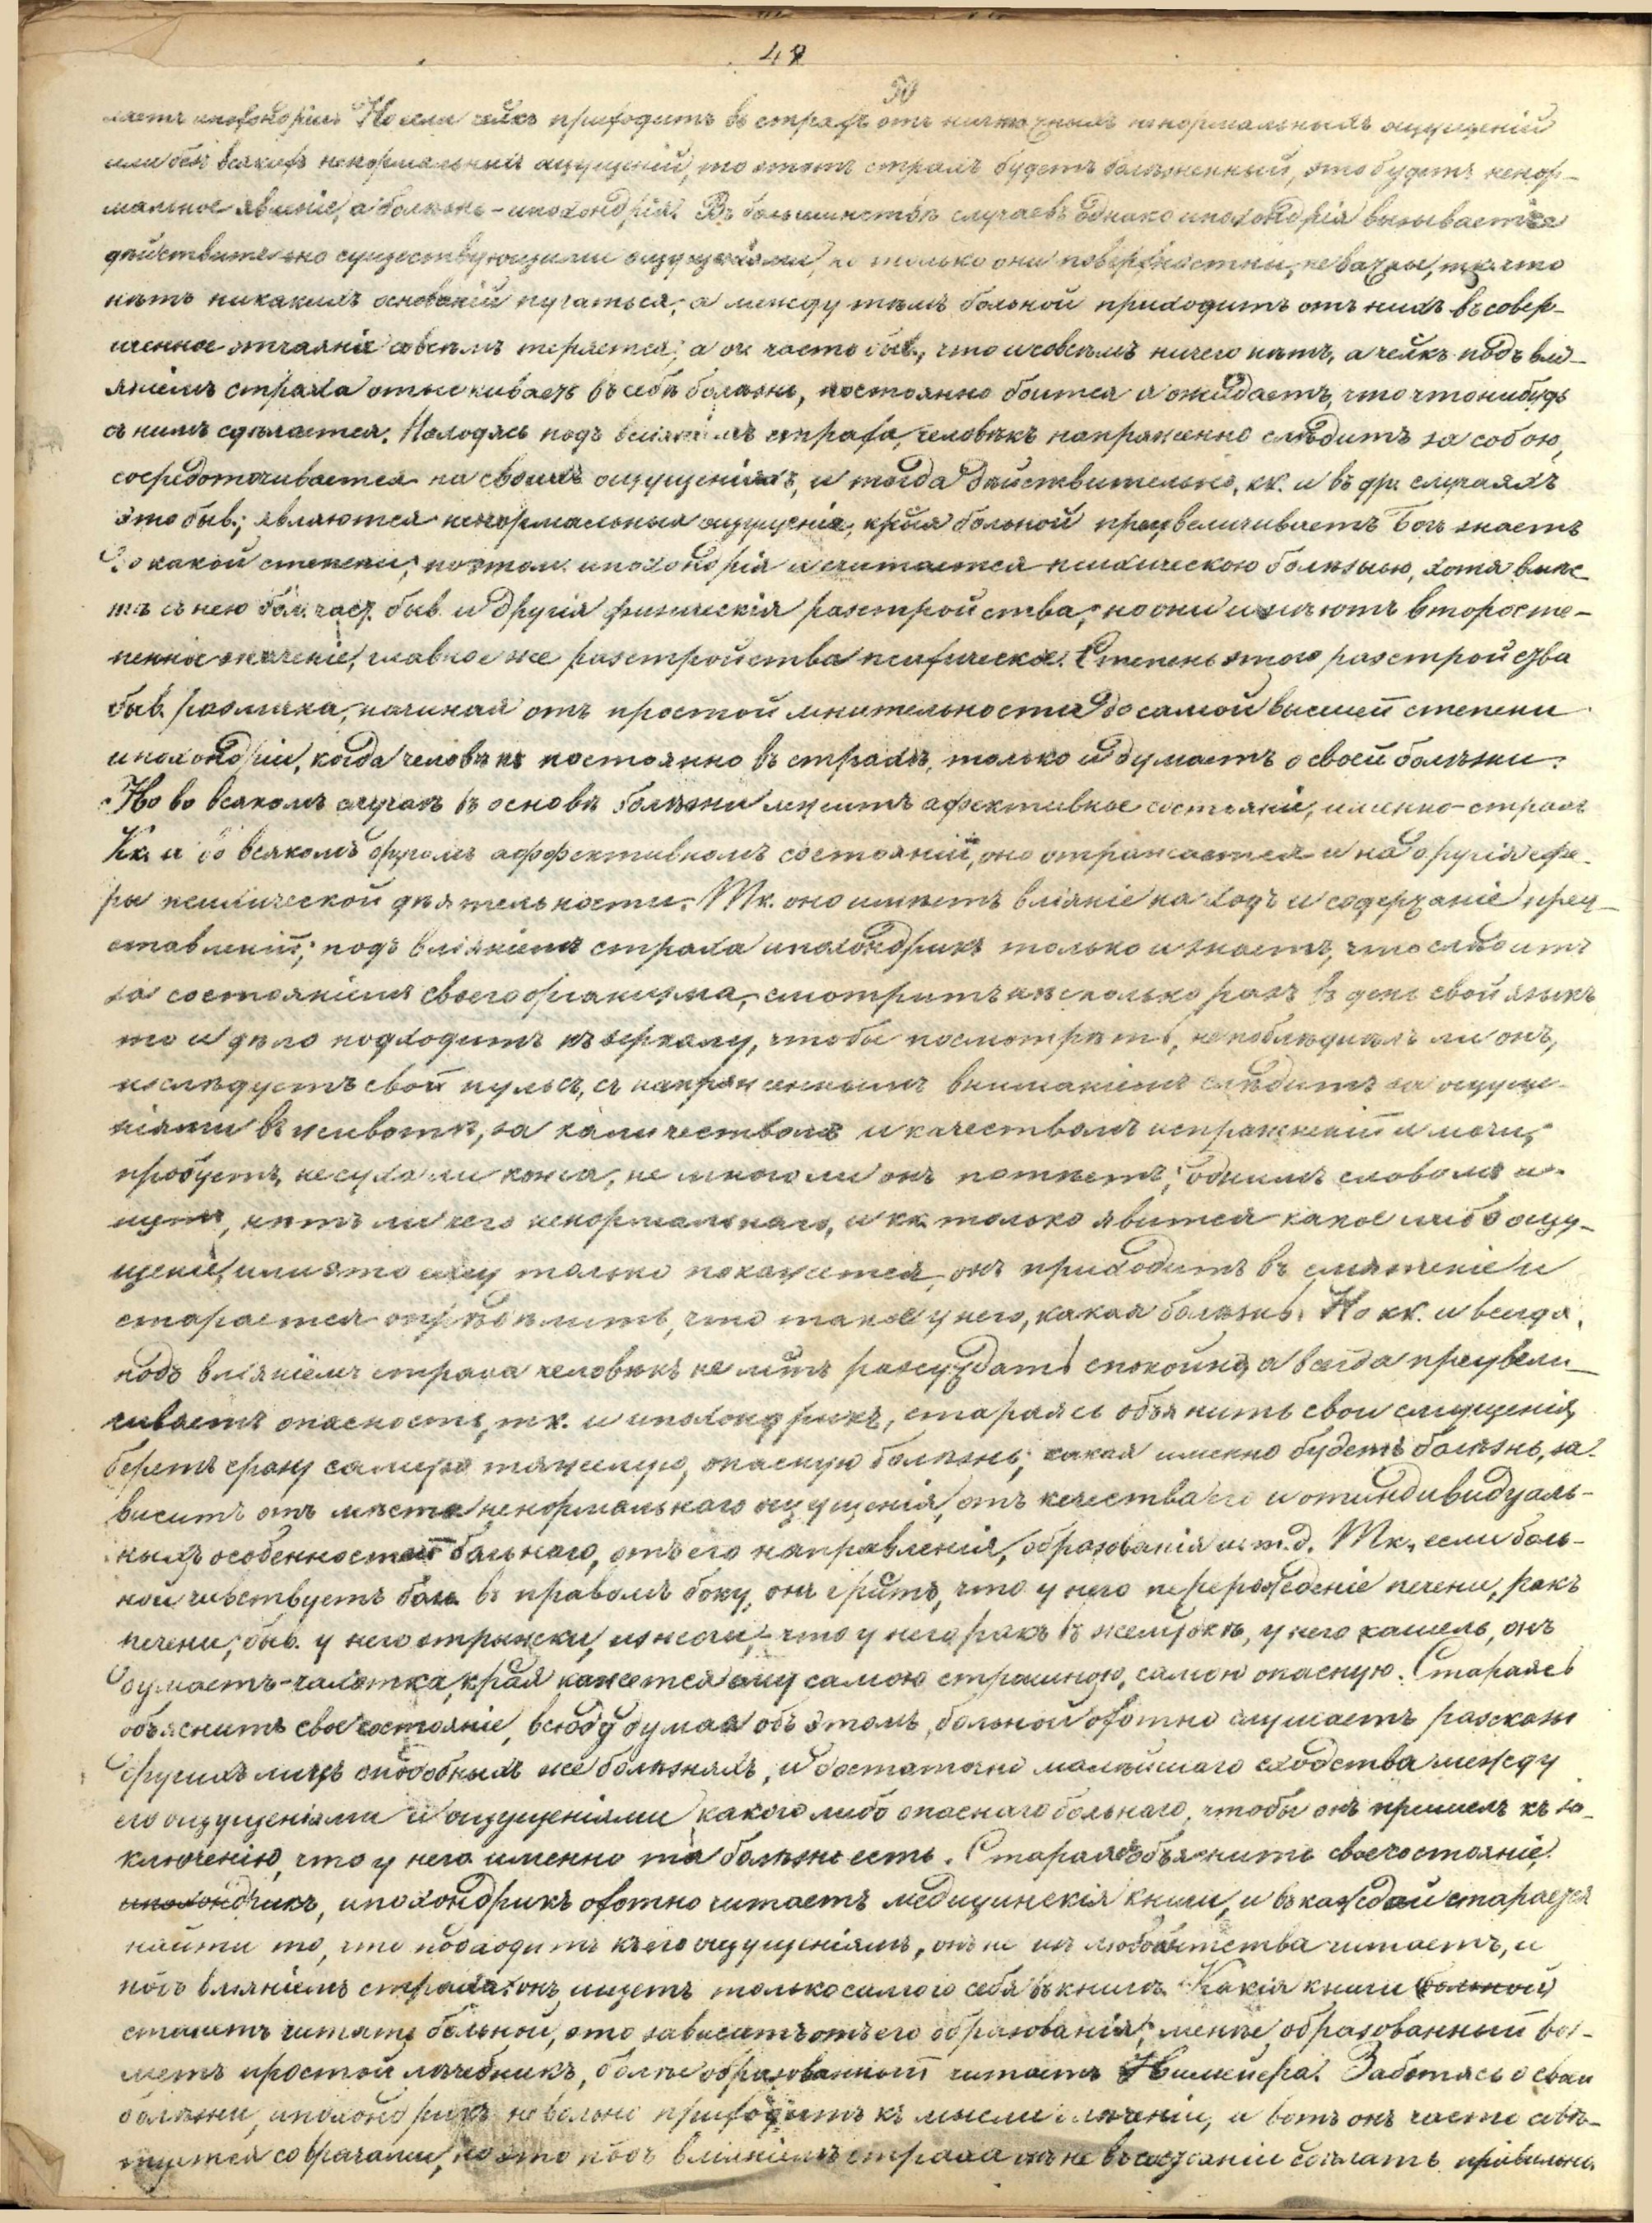 49
50
ляетъ ипохондрiи. Но если челкъ приходитъ въ страхъ отъ ничтожныхъ ненормальныхъ ощущенiй
или безъ всякихъ ненормальныхъ ощущенiй, то этотъ страхъ будетъ болѣзненный, это будетъ ненор-
мальное явленiе, а болѣзнь - ипохондрiя. Въ большинствѣ случаевъ однако ипохондрiя вызывается
дѣйствительно существующими ощущенiями, но только они поверхностны, не важны, тк. что
нѣтъ никакихъ основанiй пугаться; а между тѣмъ больной приходитъ отъ нихъ въ совер-
шенное отчаянiе совсѣмъ теряется; а оч часто быв., что и совсѣмъ ничего нѣтъ, а челкъ подъ влi-
янiемъ страха отыскиваетъ въ себѣ болѣзнь, постоянно боится и ожидаетъ, что что нибудь
съ нимъ сдѣлается. Находясь подъ влiянiемъ страха, человѣкъ напряженно слѣдитъ за собою,
сосредоточивается на своихъ ощущенiяхъ, и тогда дѣйствительно, кк. и въ др. случаяхъ
это быв., являются ненормальныя ощущенiя, крыя больной преувеличиваетъ Богъ знаетъ
до какой степени; поэтому ипохондрiя и считается психическою болѣзнью, хотя вмѣс-
тѣ съ нею бол. част. быв. и другiя физическiя разстройства; но они имѣютъ второсте-
пенное значенiе, главное же разстройства психическое. Степень этого разстройства
быв. различна, начиная отъ простой мнительности до самой высшей степени
ипохондрiи, когда человѣкъ постоянно въ страхѣ, только и думаетъ о своей болѣзни.
Но во всякомъ случаѣ въ основѣ болѣзни лежитъ афективное состоянiе, именно - страхъ
Кк. и во всякомъ другомъ аффективномъ состоянiи, оно отражается и на другiя сфе-
ры психической дѣятельности. Тк. оно имѣетъ влiянiе на ходъ и содержанiе пред-
ставленiй; подъ влiянiемъ страха ипохондрикъ только и знаетъ, что слѣдитъ
за состоянiемъ своего организма, смотритъ нѣсколько разъ въ день свой языкъ
то и дѣло подходитъ къ зеркалу, чтобы посмотрѣть, не поблѣднѣлъ ли онъ,
изслѣдуетъ свой пульсъ, съ напряженнымъ вниманiемъ слѣдитъ за ощуще-
нiями въ животѣ, за количествомъ и качествомъ испражненiй и мочи,
пробуетъ, не суха ли кожа, не много ли онъ потѣетъ; однимъ словомъ и-
щетъ, нѣтъ ли чего ненормальнаго, и кк. только явится какое либо ощу-
щенiе, или это ему только покажется, онъ приходитъ въ смятенiе и
старается опредѣлить, что такое у него, какая болѣзнь. Но кк. и всегда,
подъ влiянiемъ страха человѣкъ не мтъ разсуждать спокойно, а всегда преувели-
чиваетъ опасность, тк. и ипохондрикъ, стараясь объяснить свои ощущенiя,
беретъ сразу самую тяжелую, опасную болѣзнь; какая именно будетъ болѣзнь, за-
виситъ отъ мѣста ненормальнаго ощущенiя, отъ качества его и отъ индивидуаль-
ныхъ особенностей больнаго, отъ его направленiя, образованiя и т.д. Тк., если боль-
ной чувствуетъ боль въ правомъ боку, онъ гритъ, что у него перерожденiе печени, ракъ
печени; быв. у него отрыжки, изжоги, - что у него ракъ въ желудкѣ, у него кашель, онъ
думаетъ - чахотка, края кажется ему самою страшною, самою опасную. Стараясь
объяснить свое состоянiе, всюду думая объ этомъ, больной охотно слушаетъ разсказы
другихъ лицъ о подобныхъ же болѣзняхъ, и достаточно малѣйшаго сходства между
его ощущенiями и ощущенiями какого либо опаснаго больнаго, чтобы онъ пришелъ къ за-
ключенiю, что у него именно та болѣзнь есть. Стараясь объяснить свое состоянiе,
ипохондрикъ, ипохондрикъ охотно читаетъ медицинскiя книги, и въ каждой старается
найти то, что подходитъ къ его ощущенiямъ, онъ не изъ любопытства читаетъ, и
подъ влiянiемъ страха: онъ ищетъ только самого себя въ книгѣ. Какiя книги больной
станетъ читать больной, это зависитъ отъ его образованiя; менѣе образованный воз-
метъ простой лѣчебникъ, болѣе образованный читаетъ Нимейера. Заботясь о своей
болѣзни, ипохондрикъ невольно приходитъ къ мысли о лѣченiи, и вотъ онъ часто совѣ-
туется со врачами, но это подъ влiянiемъ страха онъ не въ состоянiи сдѣлать правильно.